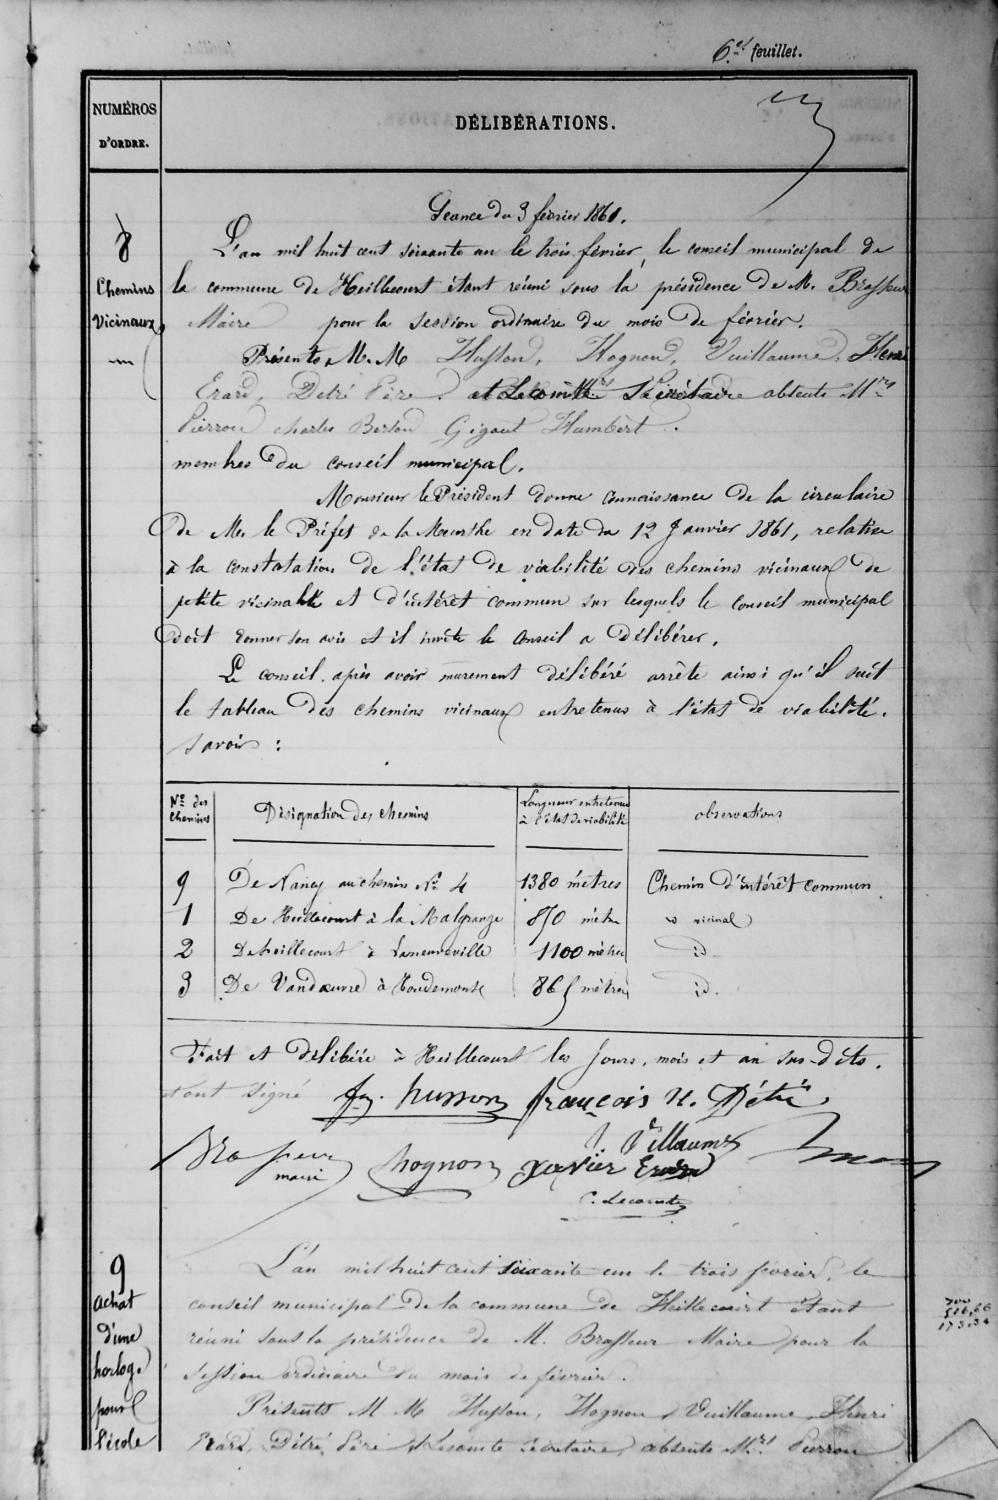 6.et feuillet.
NUMÉROS
D'ORDRE.
DÉLIBÉRATIONS.
8
Chemins
Vicinaux
Séance du 3 février 1861.
L'an mil huit cent soixante un le trois février, le conseil municipal de
la commune de Heillecourt étant réuni sous la présidence de M. Brasseur
Maire pour la session ordinaire du mois de février.
Présents M. M Husson, Hognon, Vuillaume, Henri
Erard, Détré Père. et Lecomte Secrétaire absents Mrs
Pierron charles Berton Gigout Humbert.
membres du conseil municipal.
Monsieur le Président donne connaissance de la circulaire
de M. le Préfet de la Meurthe en date du 12 Janvier 1861, relative
à la constatation de l'état de viabilité des chemins vicinaux de
petite vicinalité et d'intérêt commun sur lesquels le conseil municipal
doit donner son avis et il invite le Conseil a délibérer.
Le conseil, après avoir murement délibéré arrête ainsi qu'il suit
le tableau des chemins vicinaux entretenus à l'état de viabilité.
Savoir :
Nos des chemins Désignation des chemins Longueur entretenue à l'état de viabilité observations
9 De Nancy au chemin No 4 1380 mètres Chemin d'intérêt commun
1 De Heillecourt à la Malgrange 850 mètres vicinal
2 De heillecourt à Laneuveville 1100 mètres id.
3 De Vandœuvre à Houdemont 865 mètres id.
Fait et délibéré à Heillecourt les Jours, mois et an sus-dits.
et ont signé
husson françois N. Détré
Brasseur hognon Villaume
maire Xavier Erard
C. Lecomte
9
achat
d'une
horloge
pour
l'école
L'an mil huit cent soixante un le trois février, le
conseil municipal de la commune de Heillecourt étant
réuni sous la présidence de M. Brasseur Maire pour la
session ordinaire du mois de février.
Présents M M Husson, Hognon, Vuillaume, Henri
Erard, Détré Père et Lecomte secrétaire, absents Mrs Pierron
700
526,66
173,34